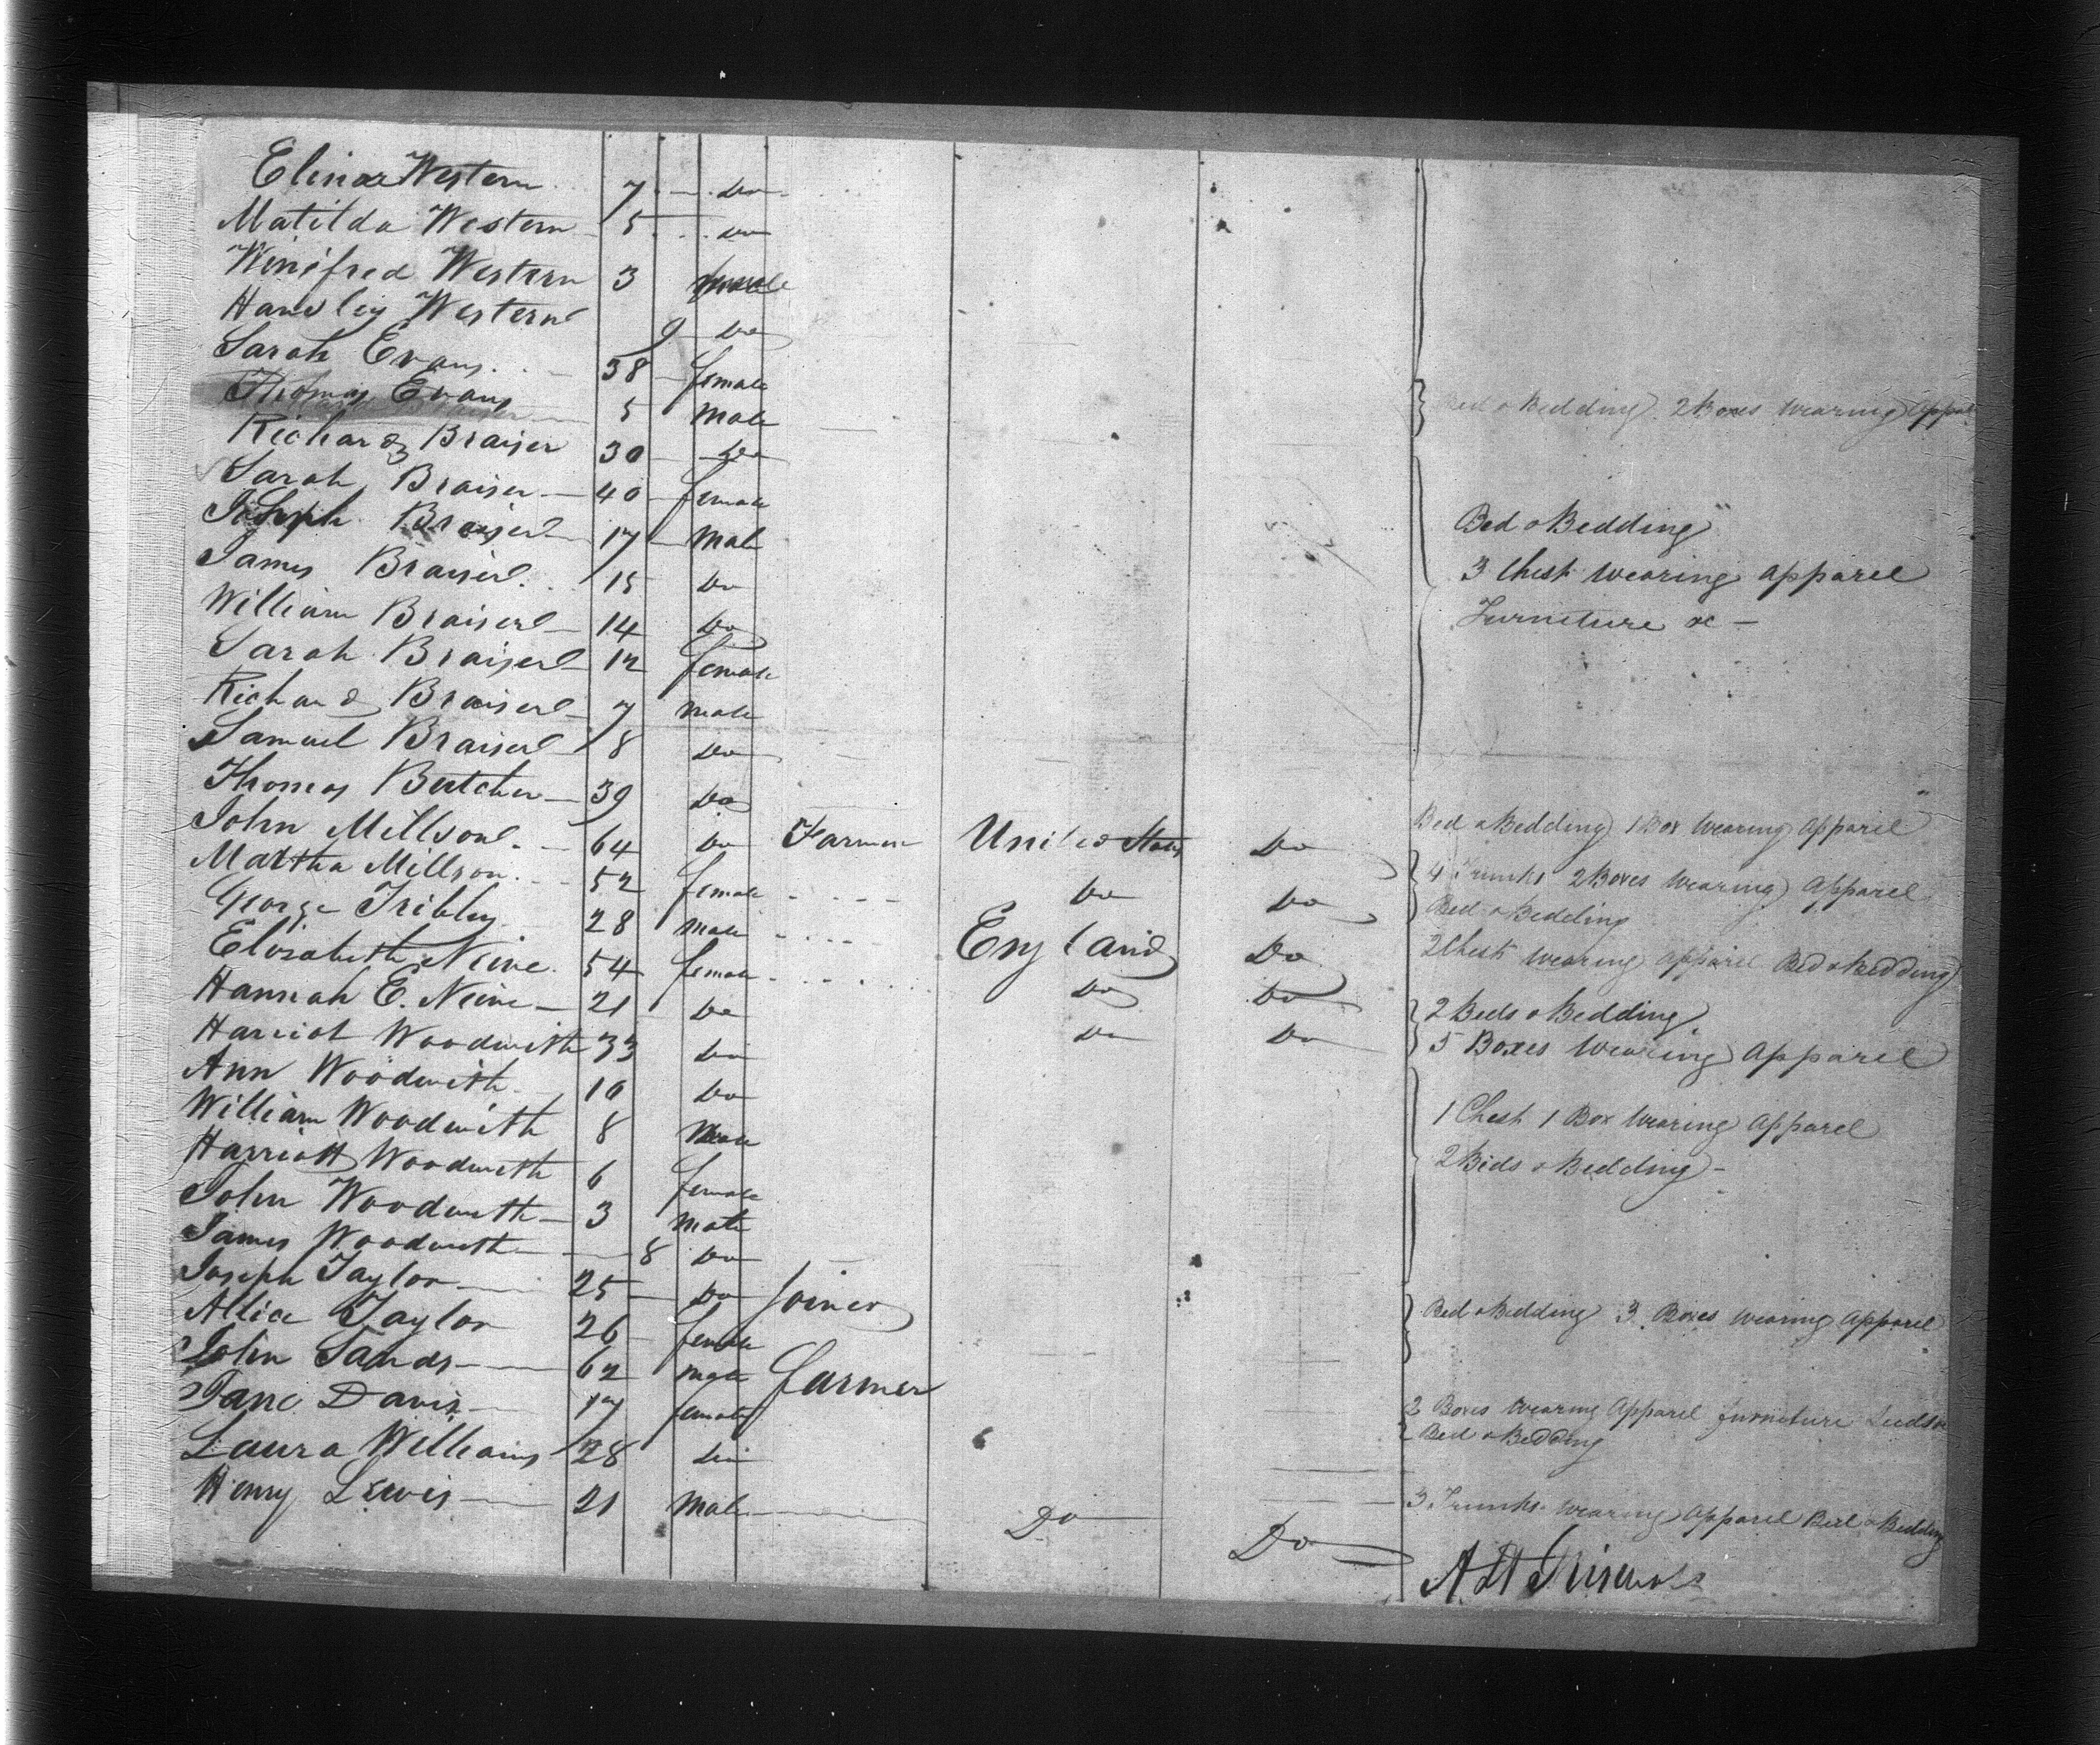 Elinor Western 7 Do
Matilda Western 5 Do
Winifred Western 3
Handley Western 9 Do
Sarah Evans 38 female
Thomas Evans 5 Male Bed & Bedding 2 Boxes Wearing Appar
Richard Braiser 30 Do
Sarah Braiser 40 female
Joseph Braiser 17 Male Bed & Bedding
James Braiser 15 Do 3 Chest Wearing Apparel
William Braiser 14 Do Furniture &c
Sarah Braiser 12 female
Richard Braiser 7 Male
Samuel Braiser 8 Do
Thomas Butcher 39 Do Bed & Bedding 1 Box Wearing Apparel
John Millson 64 Do Farmer United States Do 4 Trunks 2 Boxes Wearing Apparel
Martha Millson 52 female Do Do Bed & Bedding
George Tribley 28 Male England Do 2 Chest Wearing Apparel Bed & Bedding
Elizabeth Neine 54 female Do Do 2 Beds & Bedding
Hannah E. Neine 21 Do Do Do 5 Boxes Wearing Apparel
Harriot Woodwith 33 Do
Ann Woodwith 10 Do
William Woodwith 8 Male 1 Chest 1 Box Wearing Apparel
Harriott Woodwith 6 female 2 Beds & Bedding
John Woodwith 3 Male
James Woodwith 8 Do
Joseph Taylor 25 Do Joiner
Allice Taylor 26 female Bed & Bedding 3 Boxes Wearing Apparel
John Sands 62 Male farmer
Jane Davis 17 female 2 Boxes Wearing Apparel furniture
Laura Williams 28 Do Bed & Bedding
Henry Lewis 21 Male Do Do 3 Trunks Wearing Apparel Bed & Bedding